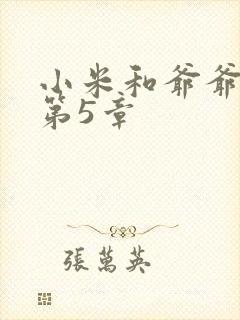 小米和爷爷
第5章
張萬英